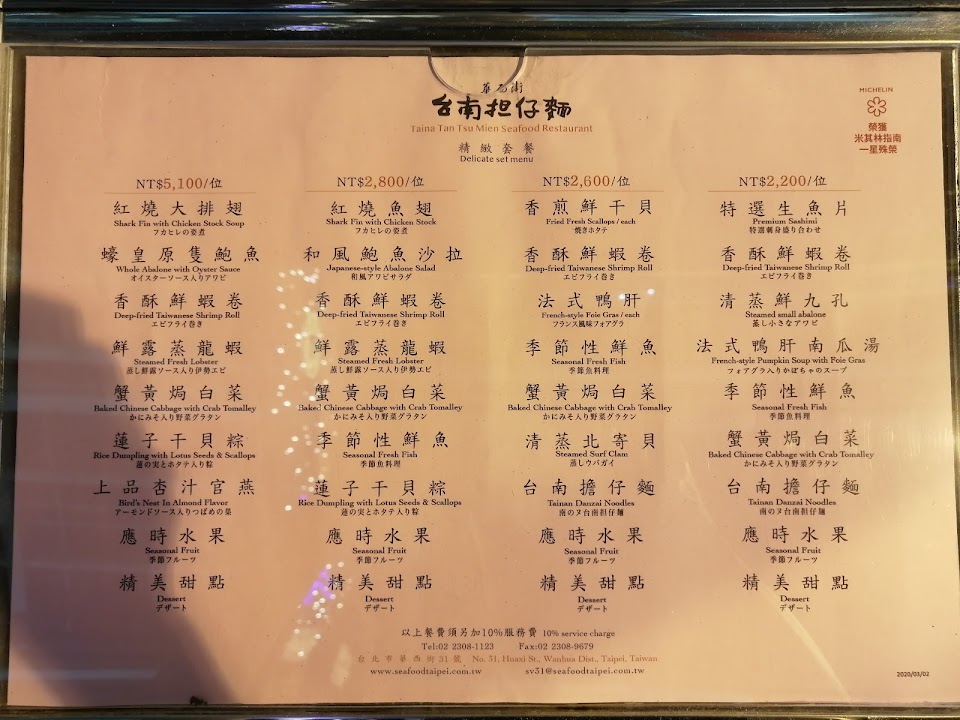 華西街
台南担仔麵
Taina Tan Tsu Mien Seafood Restaurant
精緻套餐
Delicate set menu
MICHELIN
榮獲
米其林指南
一星殊榮
NT$5,100/位
紅燒大排翅
Shark Fin with Chicken Stock Soup
フカヒレの姿煮
蠔皇原隻鮑魚
Whole Abalone with Oyster Sauce
オイスターソース入りアワビ
香酥鮮蝦卷
Deep-fried Taiwanese Shrimp Roll
エビフライ巻き
鮮露蒸龍蝦
Steamed Fresh Lobster
蒸し鮮露ソース入り伊勢エビ
蟹黃焗白菜
Baked Chinese Cabbage with Crab Tomalley
かにみそ入り野菜グラタン
蓮子干貝粽
Rice Dumpling with Lotus Seeds & Scallops
蓮の実とホタテ入り粽
上品杏汁官燕
Bird's Nest In Almond Flavor
アーモンドソース入りつばめの巣
應時水果
Seasonal Fruit
季節フルーツ
精美甜點
Dessert
デザート
NT$2,800/位
紅燒魚翅
Shark Fin with Chicken Stock
フカヒレの姿煮
和風鮑魚沙拉
Japanese-style Abalone Salad
和風アワビサラダ
香酥鮮蝦卷
Deep-fried Taiwanese Shrimp Roll
エビフライ巻き
鮮露蒸龍蝦
Steamed Fresh Lobster
蒸し鮮露ソース入り伊勢エビ
蟹黃焗白菜
Baked Chinese Cabbage with Crab Tomalley
かにみそ入り野菜グラタン
季節性鮮魚
Seasonal Fresh Fish
季節魚料理
蓮子干貝粽
Rice Dumpling with Lotus Seeds & Scallops
蓮の実とホタテ入り粽
應時水果
Seasonal Fruit
季節フルーツ
精美甜點
Dessert
デザート
NT$2,600/位
香煎鮮干貝
Fried Fresh Scallops / each
焼きホタテ
香酥鮮蝦卷
Deep-fried Taiwanese Shrimp Roll
エビフライ巻き
法式鴨肝
French-style Foie Gras / each
フランス風味フォアグラ
季節性鮮魚
Seasonal Fresh Fish
季節魚料理
蟹黃焗白菜
Baked Chinese Cabbage with Crab Tomalley
かにみそ入り野菜グラタン
清蒸北寄貝
Steamed Surf Clam
蒸しウバガイ
台南擔仔麵
Tainan Danzai Noodles
南のヌ台南担仔麺
應時水果
Seasonal Fruit
季節フルーツ
精美甜點
Dessert
デザート
NT$2,200/位
特選生魚片
Premium Sashimi
特選刺身盛り合わせ
香酥鮮蝦卷
Deep-fried Taiwanese Shrimp Roll
エビフライ巻き
清蒸鮮九孔
Steamed small abalone
蒸し小さなアワビ
法式鴨肝南瓜湯
French-style Pumpkin Soup with Foie Gras
フォアグラ入りかぼちゃのスープ
季節性鮮魚
Seasonal Fresh Fish
季節魚料理
蟹黃焗白菜
Baked Chinese Cabbage with Crab Tomalley
かにみそ入り野菜グラタン
台南擔仔麵
Tainan Danzai Noodles
南のヌ台南担仔麺
應時水果
Seasonal Fruit
季節フルーツ
精美甜點
Dessert
デザート
以上餐費須另加10%服務費 10% service charge
Tel:02 2308-1123 Fax:02 2308-9679
台北市華西街31號 No. 31, Huaxi St., Wanhua Dist., Taipei, Taiwan
www.seafoodtaipei.com.tw sv31@seafoodtaipei.com.tw
2020/03/02